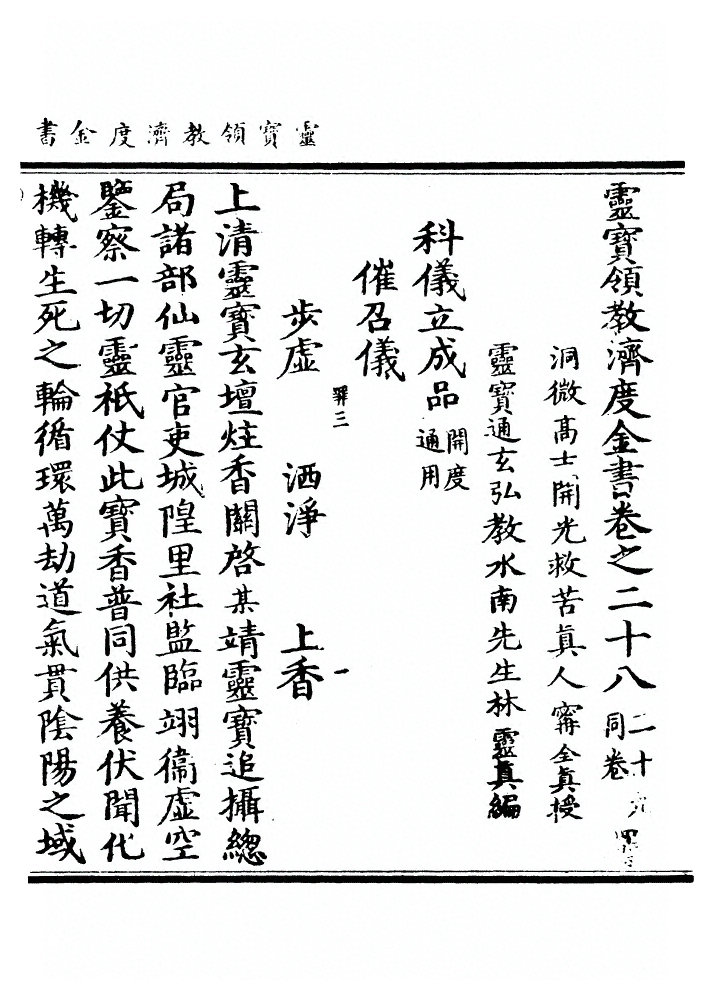 靈寶領教濟度金書
靈寶領教濟度金書卷之二十八 二十九同卷
洞微高士開光救苦真人甯全真授
靈寶通玄弘教水南先生林靈真編
科儀立成品 開度通用
催召儀
罪三
步虛 洒淨 上香 一
上清靈寶玄壇炷香關啓某靖靈寶追攝總
局諸部仙靈官吏城隍里社監臨翊衞虛空
鑒察一切靈祇仗此寶香普同供養伏聞化
機轉生死之輪循環萬劫道氣貫陰陽之域